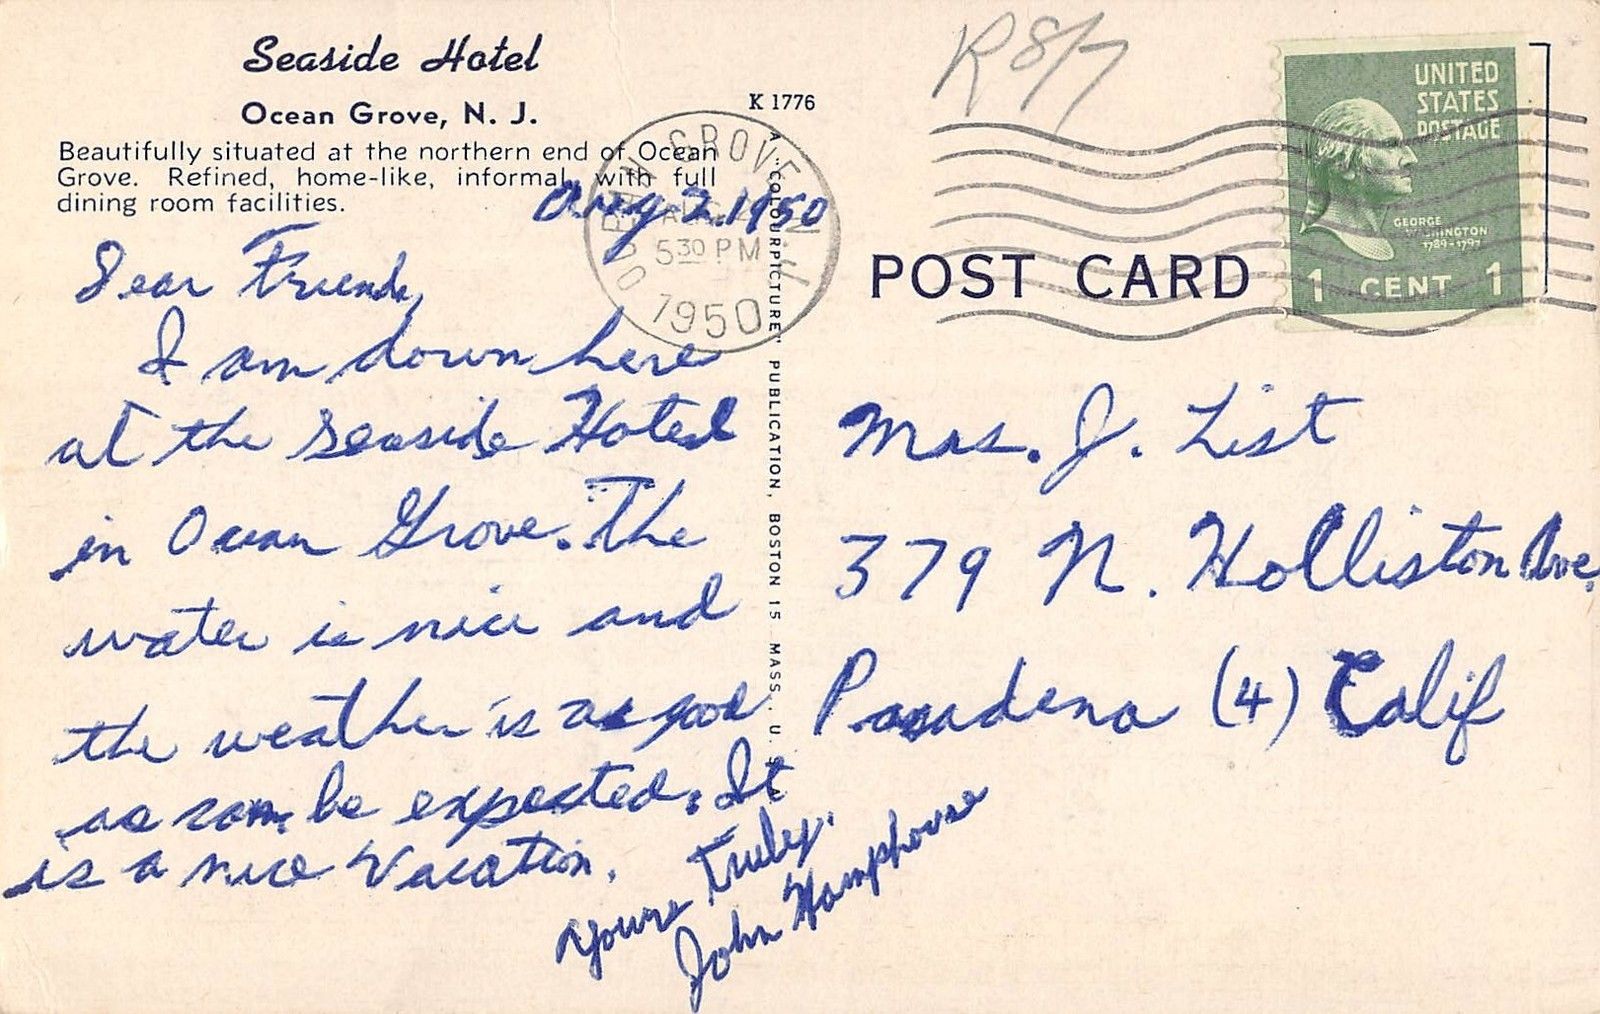 Seaside Hotel
Ocean Grove, N. J.
Beautifully situated at the northern end of Ocean
Grove. Refined, home-like, informal, with full
dining room facilities.
Aug 2, 1950
Dear Friends,
I am down here
at the Seaside Hotel
in Ocean Grove. The
water is nice and
the weather is as good
as can be expected. It
is a nice Vacation.
Yours Truly.
John Hamphouse
K 1776
A "COLOURPICTURE" PUBLICATION, BOSTON 15 MASS., U.S.A.
OCEAN GROVE N.J.
AUG 2
5 30 PM
1950
R 8/7
POST CARD
UNITED
STATES
POSTAGE
GEORGE
WASHINGTON
1789-1797
1 CENT 1
Mrs. J. List
379 N. Holliston Ave.
Pasadena (4) Calif